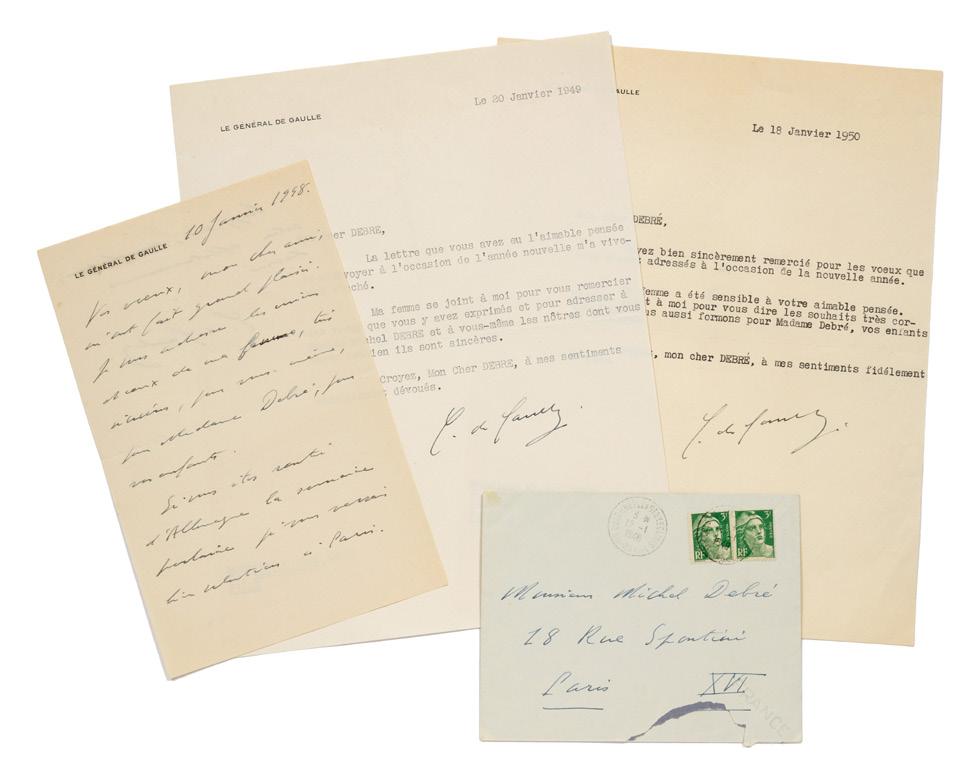 LE GÉNÉRAL DE GAULLE
10 Janvier 1948.
Vos vœux, mon cher ami,
m'ont fait grand plaisir.
Je vous adresse les miens
et ceux de ma femme, très
sincères, pour vous-même,
pour Madame Debré, pour
vos enfants.
Si vous êtes rentré
d'Allemagne la semaine
prochaine je vous verrai
bien volontiers à Paris.
LE GÉNÉRAL DE GAULLE
Le 20 Janvier 1949
her DEBRE,
La lettre que vous avez eu l'aimable pensée
voyer à l'occasion de l'année nouvelle m'a vive-
ché.
Ma femme se joint à moi pour vous remercier
que vous y avez exprimés et pour adresser à
hel DEBRE et à vous-même les nôtres dont vous
ien ils sont sincères.
Croyez, Mon Cher DEBRE, à mes sentiments
t dévoués.
C. de Gaulle.
AULLE
Le 18 Janvier 1950
DEBRÉ,
yez bien sincèrement remercié pour les voeux que
z adressés à l'occasion de la nouvelle année.
femme a été sensible à votre aimable pensée.
nt à moi pour vous dire les souhaits très cor-
us aussi formons pour Madame Debré, vos enfants
, mon cher DEBRÉ, à mes sentiments fidèlement
C. de Gaulle.
3F 3F
RF RF
Monsieur Michel Debré
18 Rue Spontini
Paris XVI
FRANCE